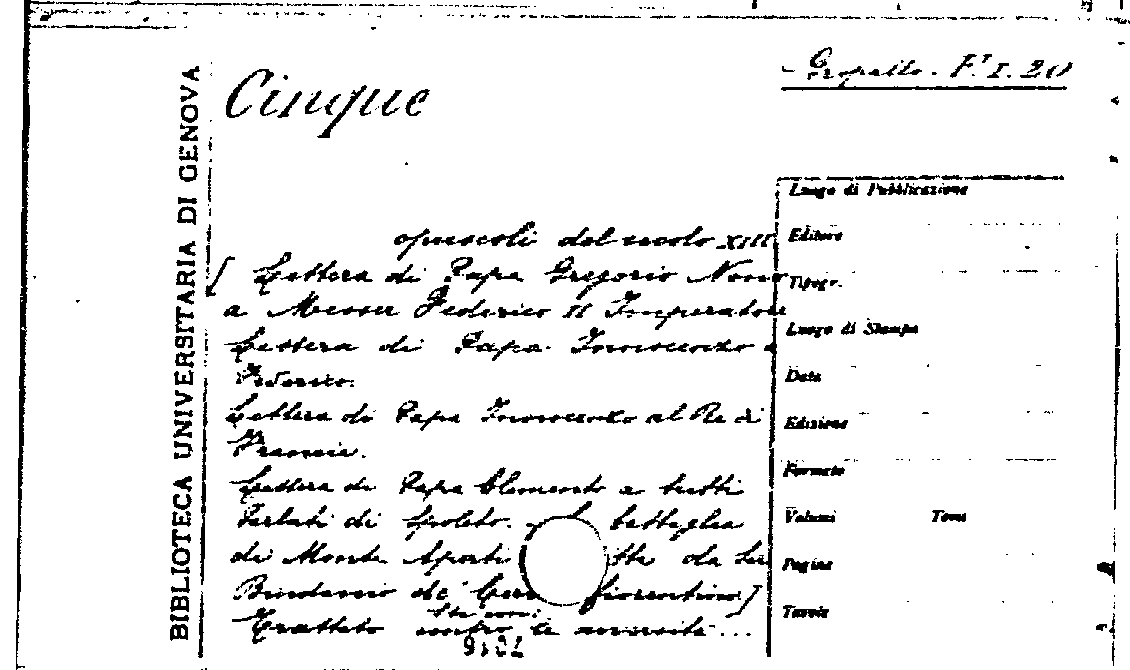 Gropallo. F. I. 20
BIBLIOTECA UNIVERSITARIA DI GENOVA
Cinque
opuscoli del secolo XIII
[ Lettera di Papa Gregorio Nono
a Messer Federico II Imperatore
Lettera di Papa Innocenzo a
Federico.
Lettera di Papa Innocenzo al Re di
Francia.
Lettera di Papa Clemento a tutti
Parlati di Spoleto. battaglia
di Monte Aperti da Ser
Bindaccio de' fiorentino]
Trattato contro le avversità...
Luogo di Pubblicazione
Editore
Tipogr.
Luogo di Stampa
Data
Edizione
Formato
Volumi Tomi
Pagine
Tavole